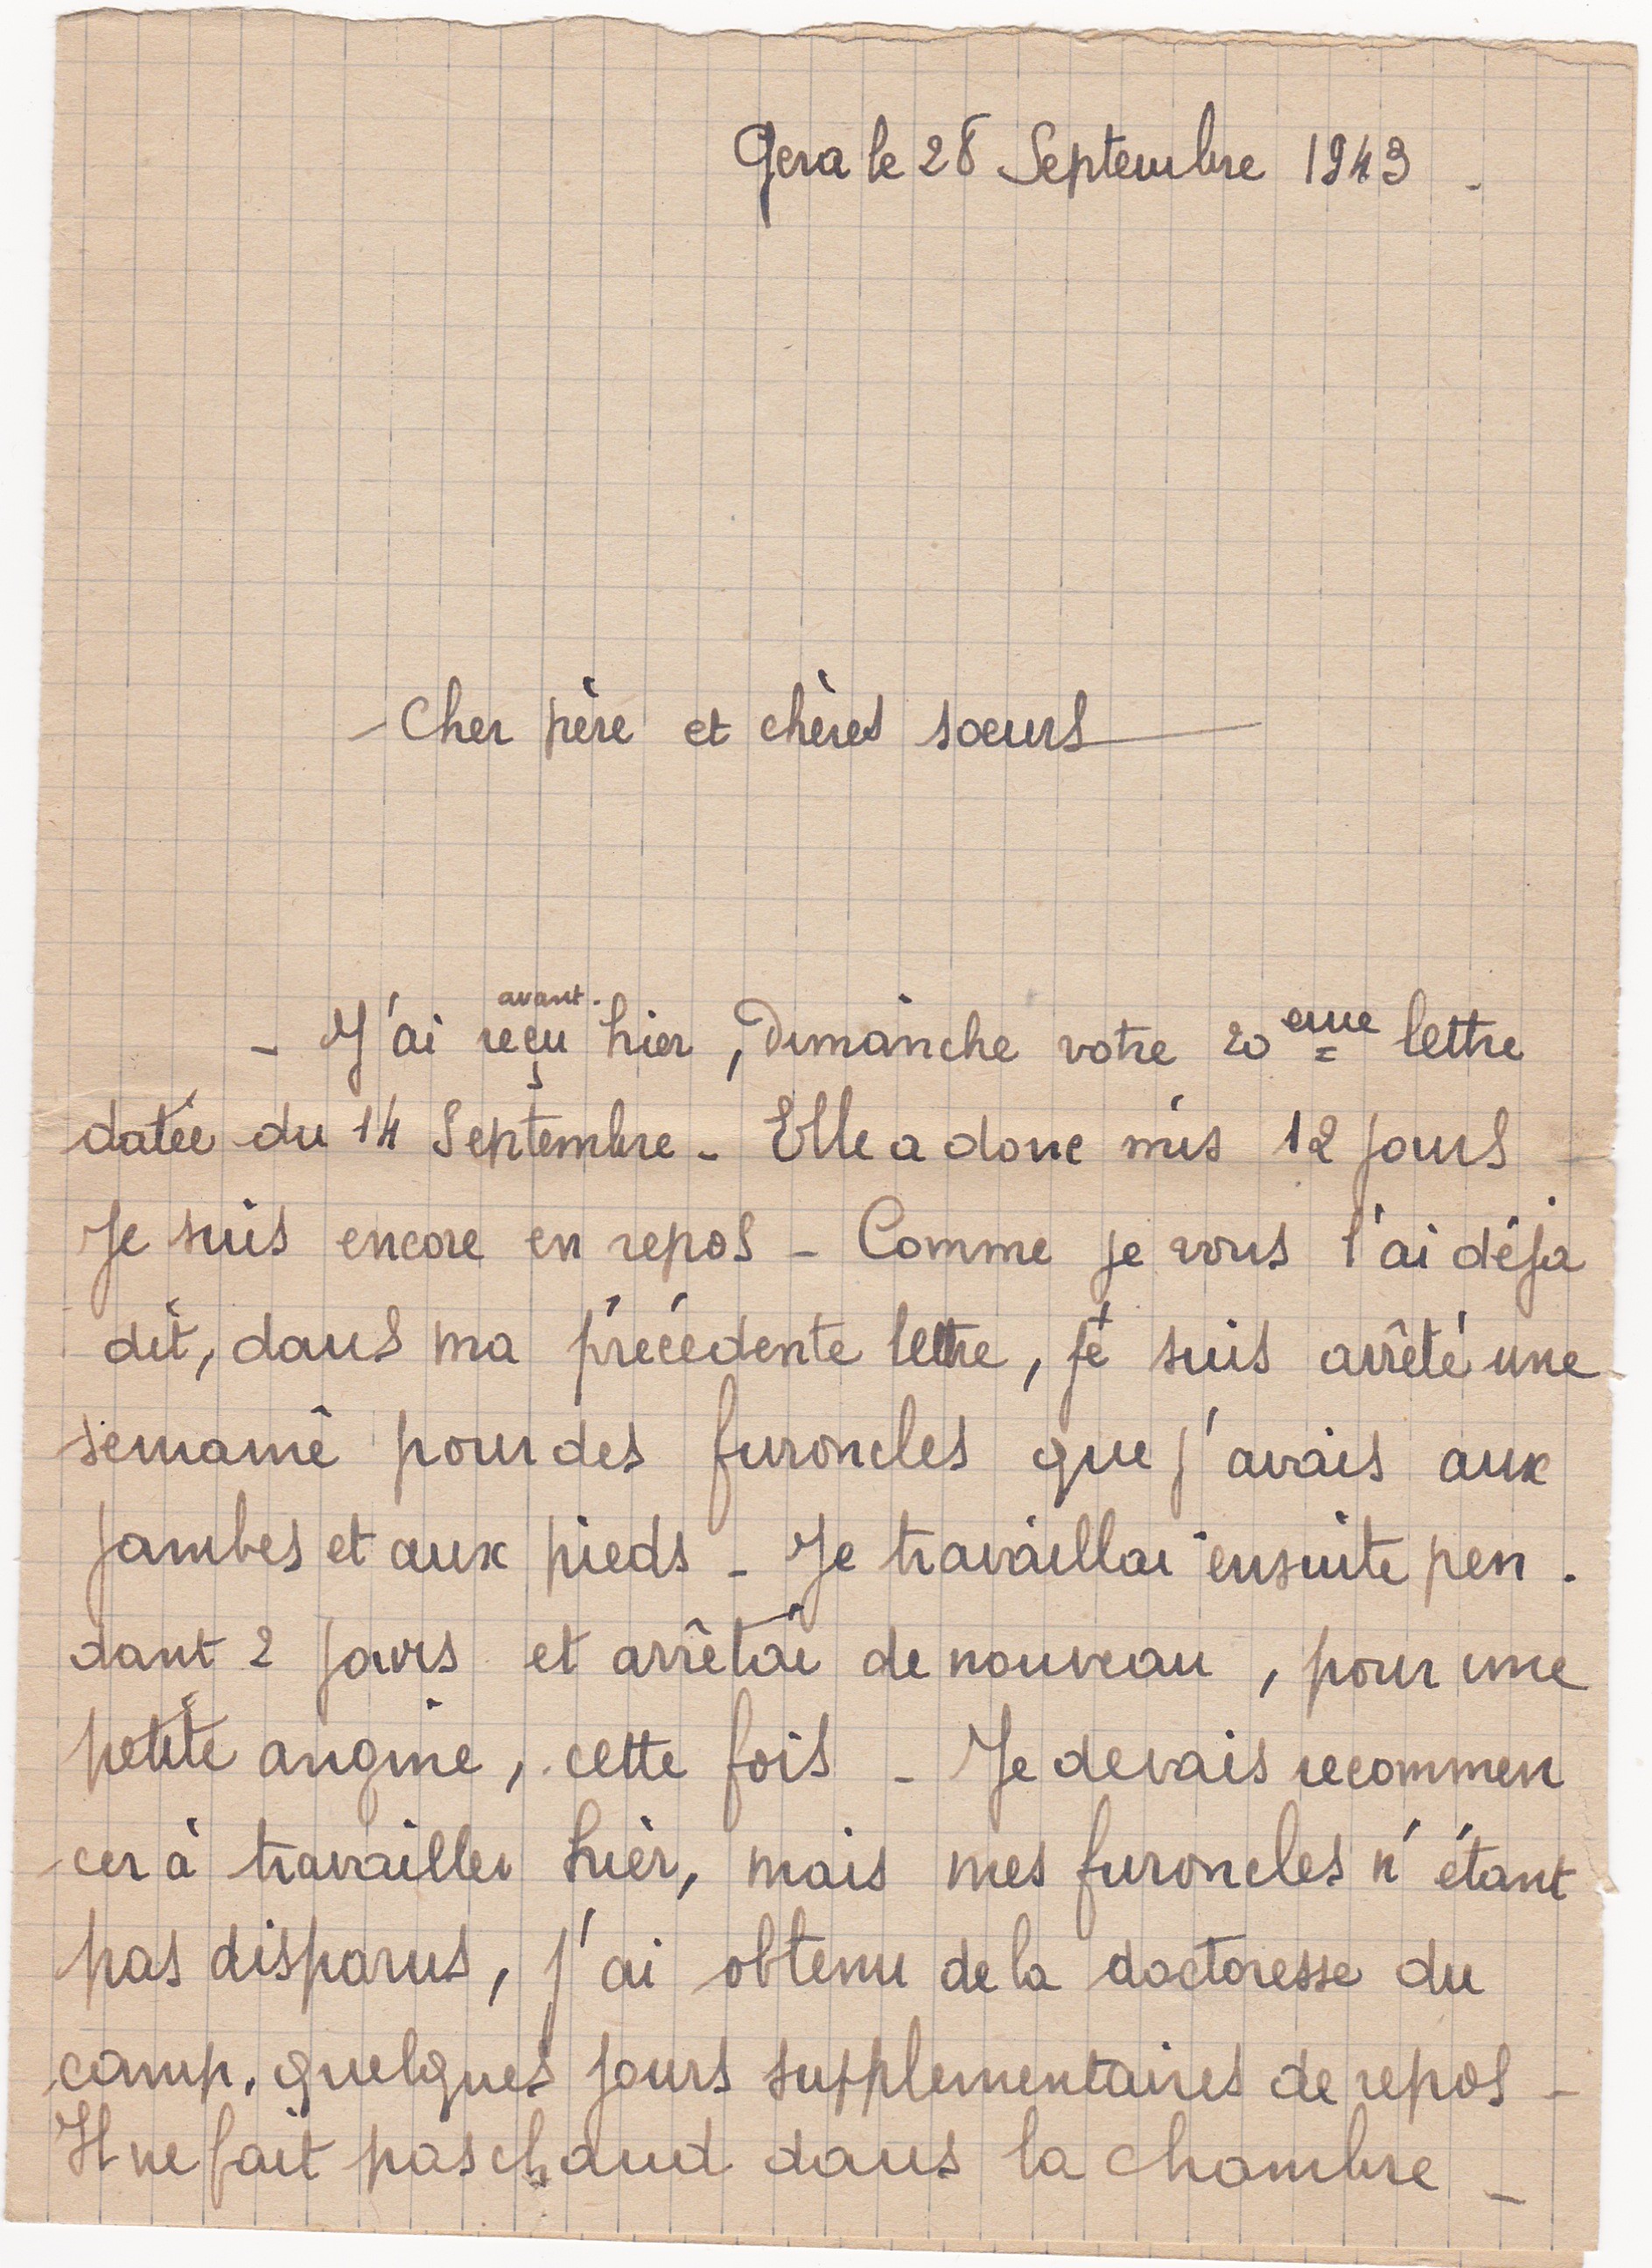 Gera le 28 Septembre 1943 -
- Cher père et chères soeurs -
avant-
- J'ai reçu hier, Dimanche votre 20 eme lettre
datée du 14 Septembre - Elle a donc mis 12 jours -
Je suis encore en repos - Comme je vous l'ai déjà
dit, dans ma précédente lettre, je suis arrêté une
semaine pour des furoncles que j'avais aux
jambes et aux pieds - Je travaillai ensuite pen-
dant 2 jours et arrêtai de nouveau, pour une
petite angine, cette fois - Je devais recommen
cer à travailler hier, mais mes furoncles n'étant
pas disparus, j'ai obtenu de la doctoresse du
camp, quelques jours supplementaires de repos -
Il ne fait pas chaud dans la chambre -